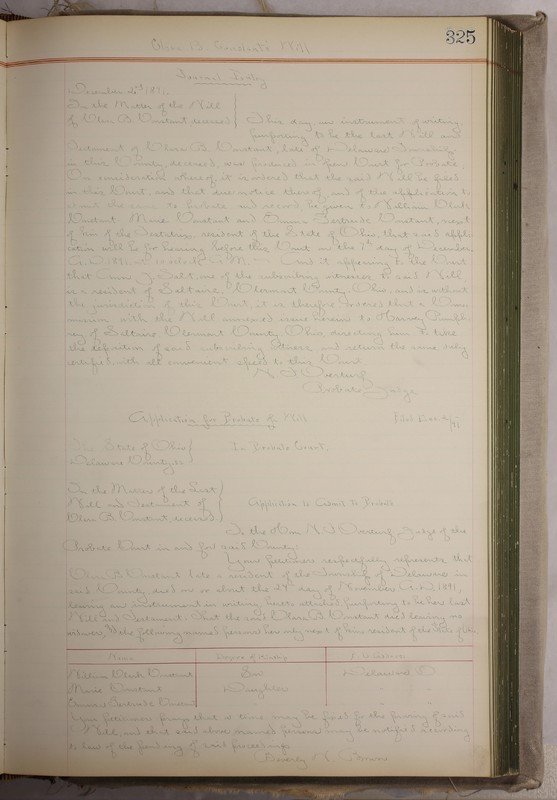 325
Clara B. Constant's Will
Journal Entry
December 4th 1891.
In the Matter of the Will
of Clara B. Constant, deceased This day, an instrument of writing,
purporting to be the last Will and
Testament of Clara B. Constant, late of Delaware Township
in this County, deceased, was produced in open Court for Probate.
On consideration whereof, it is ordered that the said Will be filed
in this Court, and that due notice thereof, and of the application to
admit the same to Probate and record, be given to William Clark
Constant, Marie Constant and Emma Gertrude Constant, next
of kin of the Testatrix, resident of the State of Ohio, that said appli-
cation will be for hearing before this Court on the 7th day of December
A.D. 1891, at o'clock A.M. And it appearing to the Court
that one of the subscribing witnesses to said Will
is a resident of Clermont County, Ohio, and is without
the jurisdiction of this Court, it is therefore ordered that a Com-
mission with the Will annexed issue herein to Harvey
of Clermont County, Ohio, directing him to take
the deposition of said subscribing witness, and return the same, duly
certified, with all convenient speed to this Court.
Probate Judge
Application for Probate of Will Filed Dec
The State of Ohio In Probate Court,
Delaware County, ss
In the Matter of the Last
Will and Testament of Application to Admit to Probate
Clara B. Constant, deceased
To the Hon. Judge of the
Probate Court in and for said County:
Your petitioner respectfully represents that
Clara B. Constant late a resident of the Township of Delaware in
said County, died on or about the day of November A.D. 1891,
leaving an instrument in writing, hereto attached, purporting to be her last
Will and Testament. That the said Clara B. Constant died leaving no
widower, the following named persons her only next of kin, resident of the State of
Name Degree of Kinship P.O. Address
William Clark Constant Son Delaware O.
Marie Constant Daughter " "
Emma Gertrude Constant " "
Your petitioner prays that a time may be fixed for the proving of said
Will, and that said above named persons may be notified according
to law of the pendency of said proceedings.